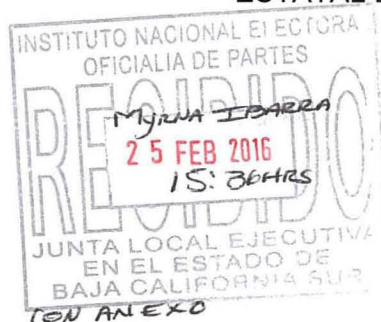 INSTITUTO NACIONAL ELECTORA
OFICIALIA DE PARTES
RECIBIDO
MYRNA IBARRA
25 FEB 2016
15:36HRS
JUNTA LOCAL EJECUTIVA
EN EL ESTADO DE
BAJA CALIFORNIA SUR
CON ANEXO